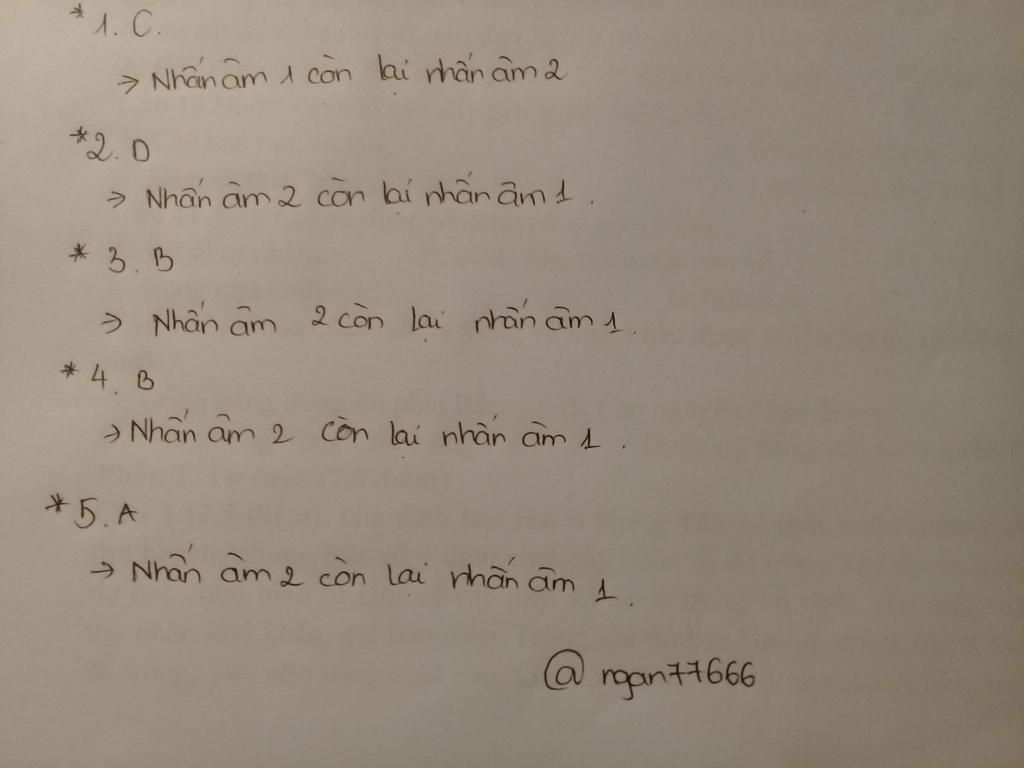 * 1. C.
→ Nhấn âm 1 còn lại nhấn âm 2
* 2. D
→ Nhấn âm 2 còn lại nhấn âm 1.
* 3. B
→ Nhấn âm 2 còn lại nhấn âm 1.
* 4. B
→ Nhấn âm 2 còn lại nhấn âm 1.
* 5. A
→ Nhấn âm 2 còn lại nhấn âm 1.
@ ngan77666